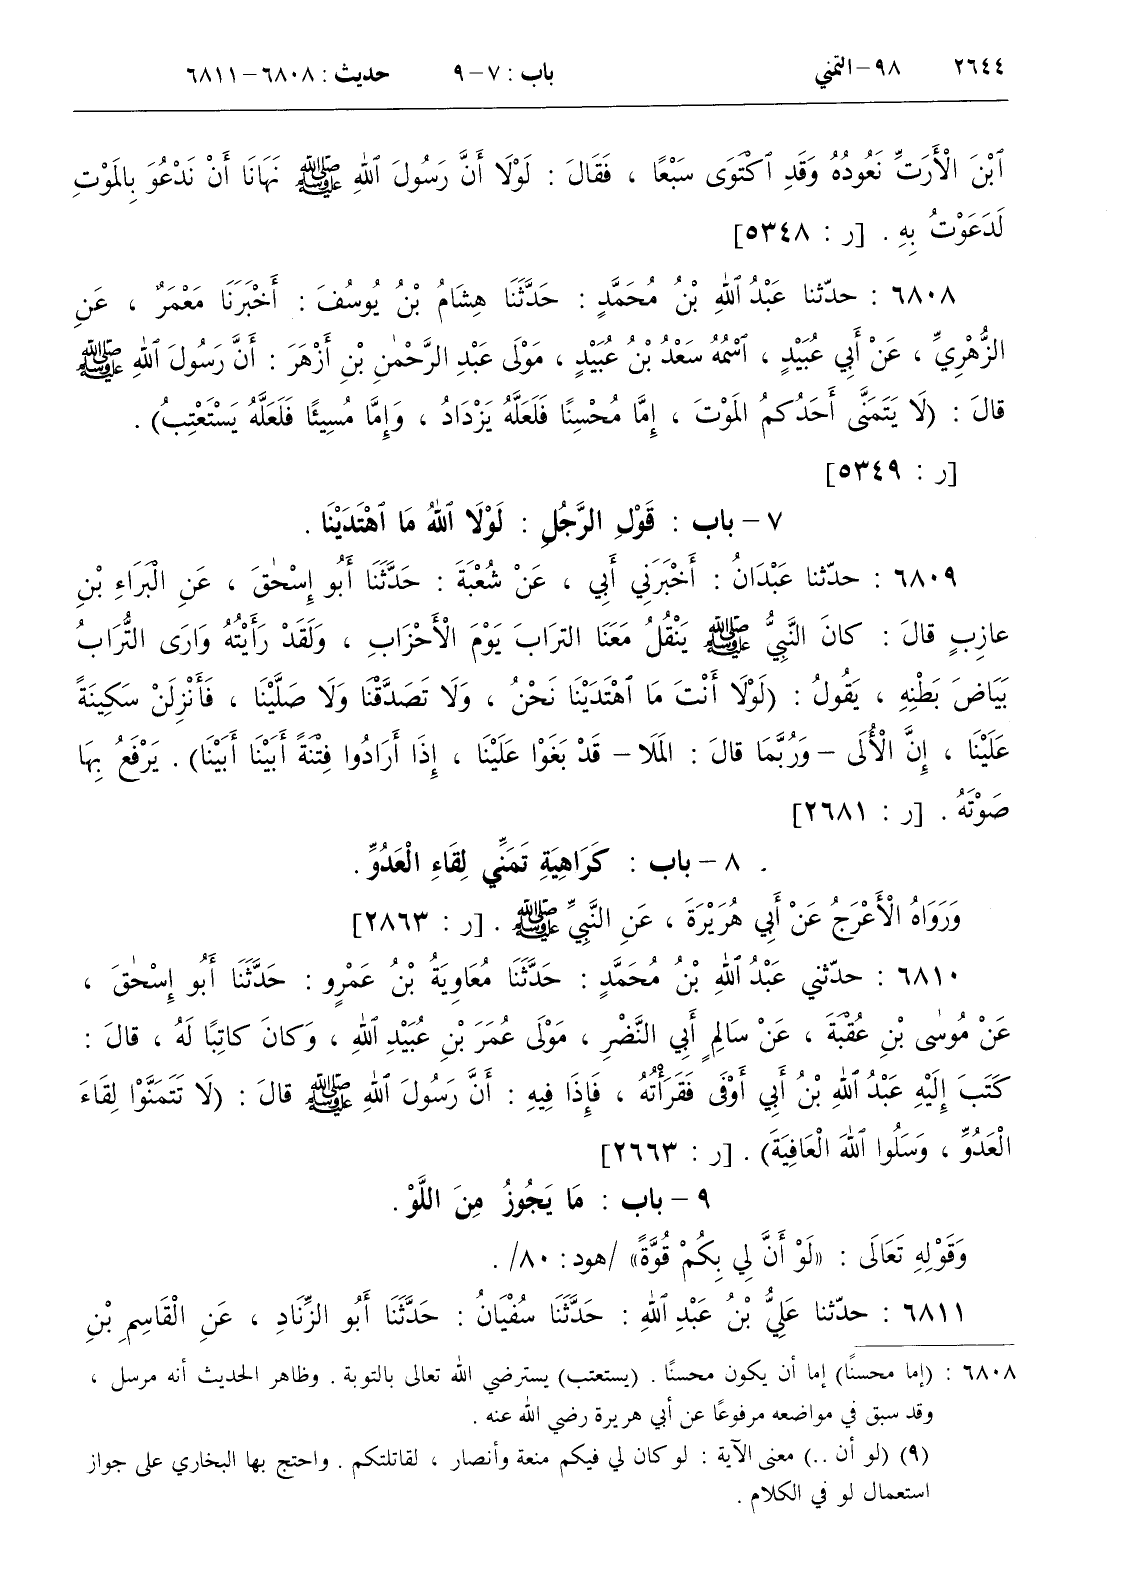 ٢٦٤٤ ٩٨-التمني باب : ٧-٩ حديث : ٦٨٠٨-٦٨١١
ٱبْنَ الْأَرَتِّ نَعُودُهُ وَقَدِ ٱكْتَوَى سَبْعًا ، فَقَالَ : لَوْلَا أَنَّ رَسُولَ ٱللهِ ﷺ نَهَانَا أَنْ نَدْعُوَ بِالمَوْتِ
لَدَعَوْتُ بِهِ . [ر : ٥٣٤٨]
٦٨٠٨ : حدّثنا عَبْدُ ٱللهِ بْنُ مُحَمَّدٍ : حَدَّثَنَا هِشَامُ بْنُ يُوسُفَ : أَخْبَرَنَا مَعْمَرٌ ، عَنِ
الزُّهْرِيِّ ، عَنْ أَبِي عُبَيْدٍ ، ٱسْمُهُ سَعْدُ بْنُ عُبَيْدٍ ، مَوْلَى عَبْدِ الرَّحْمٰنِ بْنِ أَزْهَرَ : أَنَّ رَسُولَ ٱللهِ ﷺ
قالَ : (لَا يَتَمَنَّى أَحَدُكُمُ المَوْتَ ، إِمَّا مُحْسِنًا فَلَعَلَّهُ يَزْدَادُ ، وَإِمَّا مُسِيئًا فَلَعَلَّهُ يَسْتَعْتِبُ) .
[ر : ٥٣٤٩]
٧ – باب : قَوْلِ الرَّجُلِ : لَوْلَا ٱللهُ مَا ٱهْتَدَيْنَا .
٦٨٠٩ : حدّثنا عَبْدَانُ : أَخْبَرَنِي أَبِي ، عَنْ شُعْبَةَ : حَدَّثَنَا أَبُو إِسْحٰقَ ، عَنِ الْبَرَاءِ بْنِ
عازِبٍ قالَ : كانَ النَّبِيُّ ﷺ يَنْقُلُ مَعَنَا الترَابَ يَوْمَ الْأَحْزَابِ ، وَلَقَدْ رَأَيْتُهُ وَارَى التُّرَابُ
بَيَاضَ بَطْنِهِ ، يَقُولُ : (لَوْلَا أَنْتَ مَا ٱهْتَدَيْنَا نَحْنُ ، وَلَا تَصَدَّقْنَا وَلَا صَلَّيْنَا ، فَأَنْزِلَنْ سَكِينَةً
عَلَيْنَا ، إِنَّ الْأُلَى – وَرُبَّمَا قالَ : المَلَا – قَدْ بَغَوْا عَلَيْنَا ، إِذَا أَرَادُوا فِتْنَةً أَبَيْنَا أَبَيْنَا) . يَرْفَعُ بِهَا
صَوْتَهُ . [ر : ٢٦٨١]
٨ – باب : كَرَاهِيَةِ تَمَنِّي لِقَاءِ الْعَدُوِّ .
وَرَوَاهُ الْأَعْرَجُ عَنْ أَبِي هُرَيْرَةَ ، عَنِ النَّبِيِّ ﷺ . [ر : ٢٨٦٣]
٦٨١٠ : حدّثني عَبْدُ ٱللهِ بْنُ مُحَمَّدٍ : حَدَّثَنَا مُعَاوِيَةُ بْنُ عَمْرٍو : حَدَّثَنَا أَبُو إِسْحٰقَ ،
عَنْ مُوسٰى بْنِ عُقْبَةَ ، عَنْ سَالِمٍ أَبِي النَّضْرِ ، مَوْلَى عُمَرَ بْنِ عُبَيْدِ ٱللهِ ، وَكانَ كاتِبًا لَهُ ، قالَ :
كَتَبَ إِلَيْهِ عَبْدُ ٱللهِ بْنُ أَبِي أَوْفَى فَقَرَأْتُهُ ، فَإِذَا فِيهِ : أَنَّ رَسُولَ ٱللهِ ﷺ قالَ : (لَا تَتَمَنَّوْا لِقَاءَ
الْعَدُوِّ ، وَسَلُوا ٱللهَ الْعَافِيَةَ) . [ر : ٢٦٦٣]
٩ – باب : مَا يَجُوزُ مِنَ اللَّوْ .
وَقَوْلِهِ تَعَالَى : «لَوْ أَنَّ لِي بِكُمْ قُوَّةً» /هود: ٨٠/ .
٦٨١١ : حدّثنا عَلِيُّ بْنُ عَبْدِ ٱللهِ : حَدَّثَنَا سُفْيَانُ : حَدَّثَنَا أَبُو الزِّنَادِ ، عَنِ الْقَاسِمِ بْنِ
٦٨٠٨ : (إما محسنًا) إما أن يكون محسنًا . (يستعتب) يسترضي الله تعالى بالتوبة . وظاهر الحديث أنه مرسل ،
وقد سبق في مواضعه مرفوعًا عن أبي هريرة رضي الله عنه .
(٩) (لو أن ..) معنى الآية : لو كان لي فيكم منعة وأنصار ، لقاتلتكم . واحتج بها البخاري على جواز
استعمال لو في الكلام .